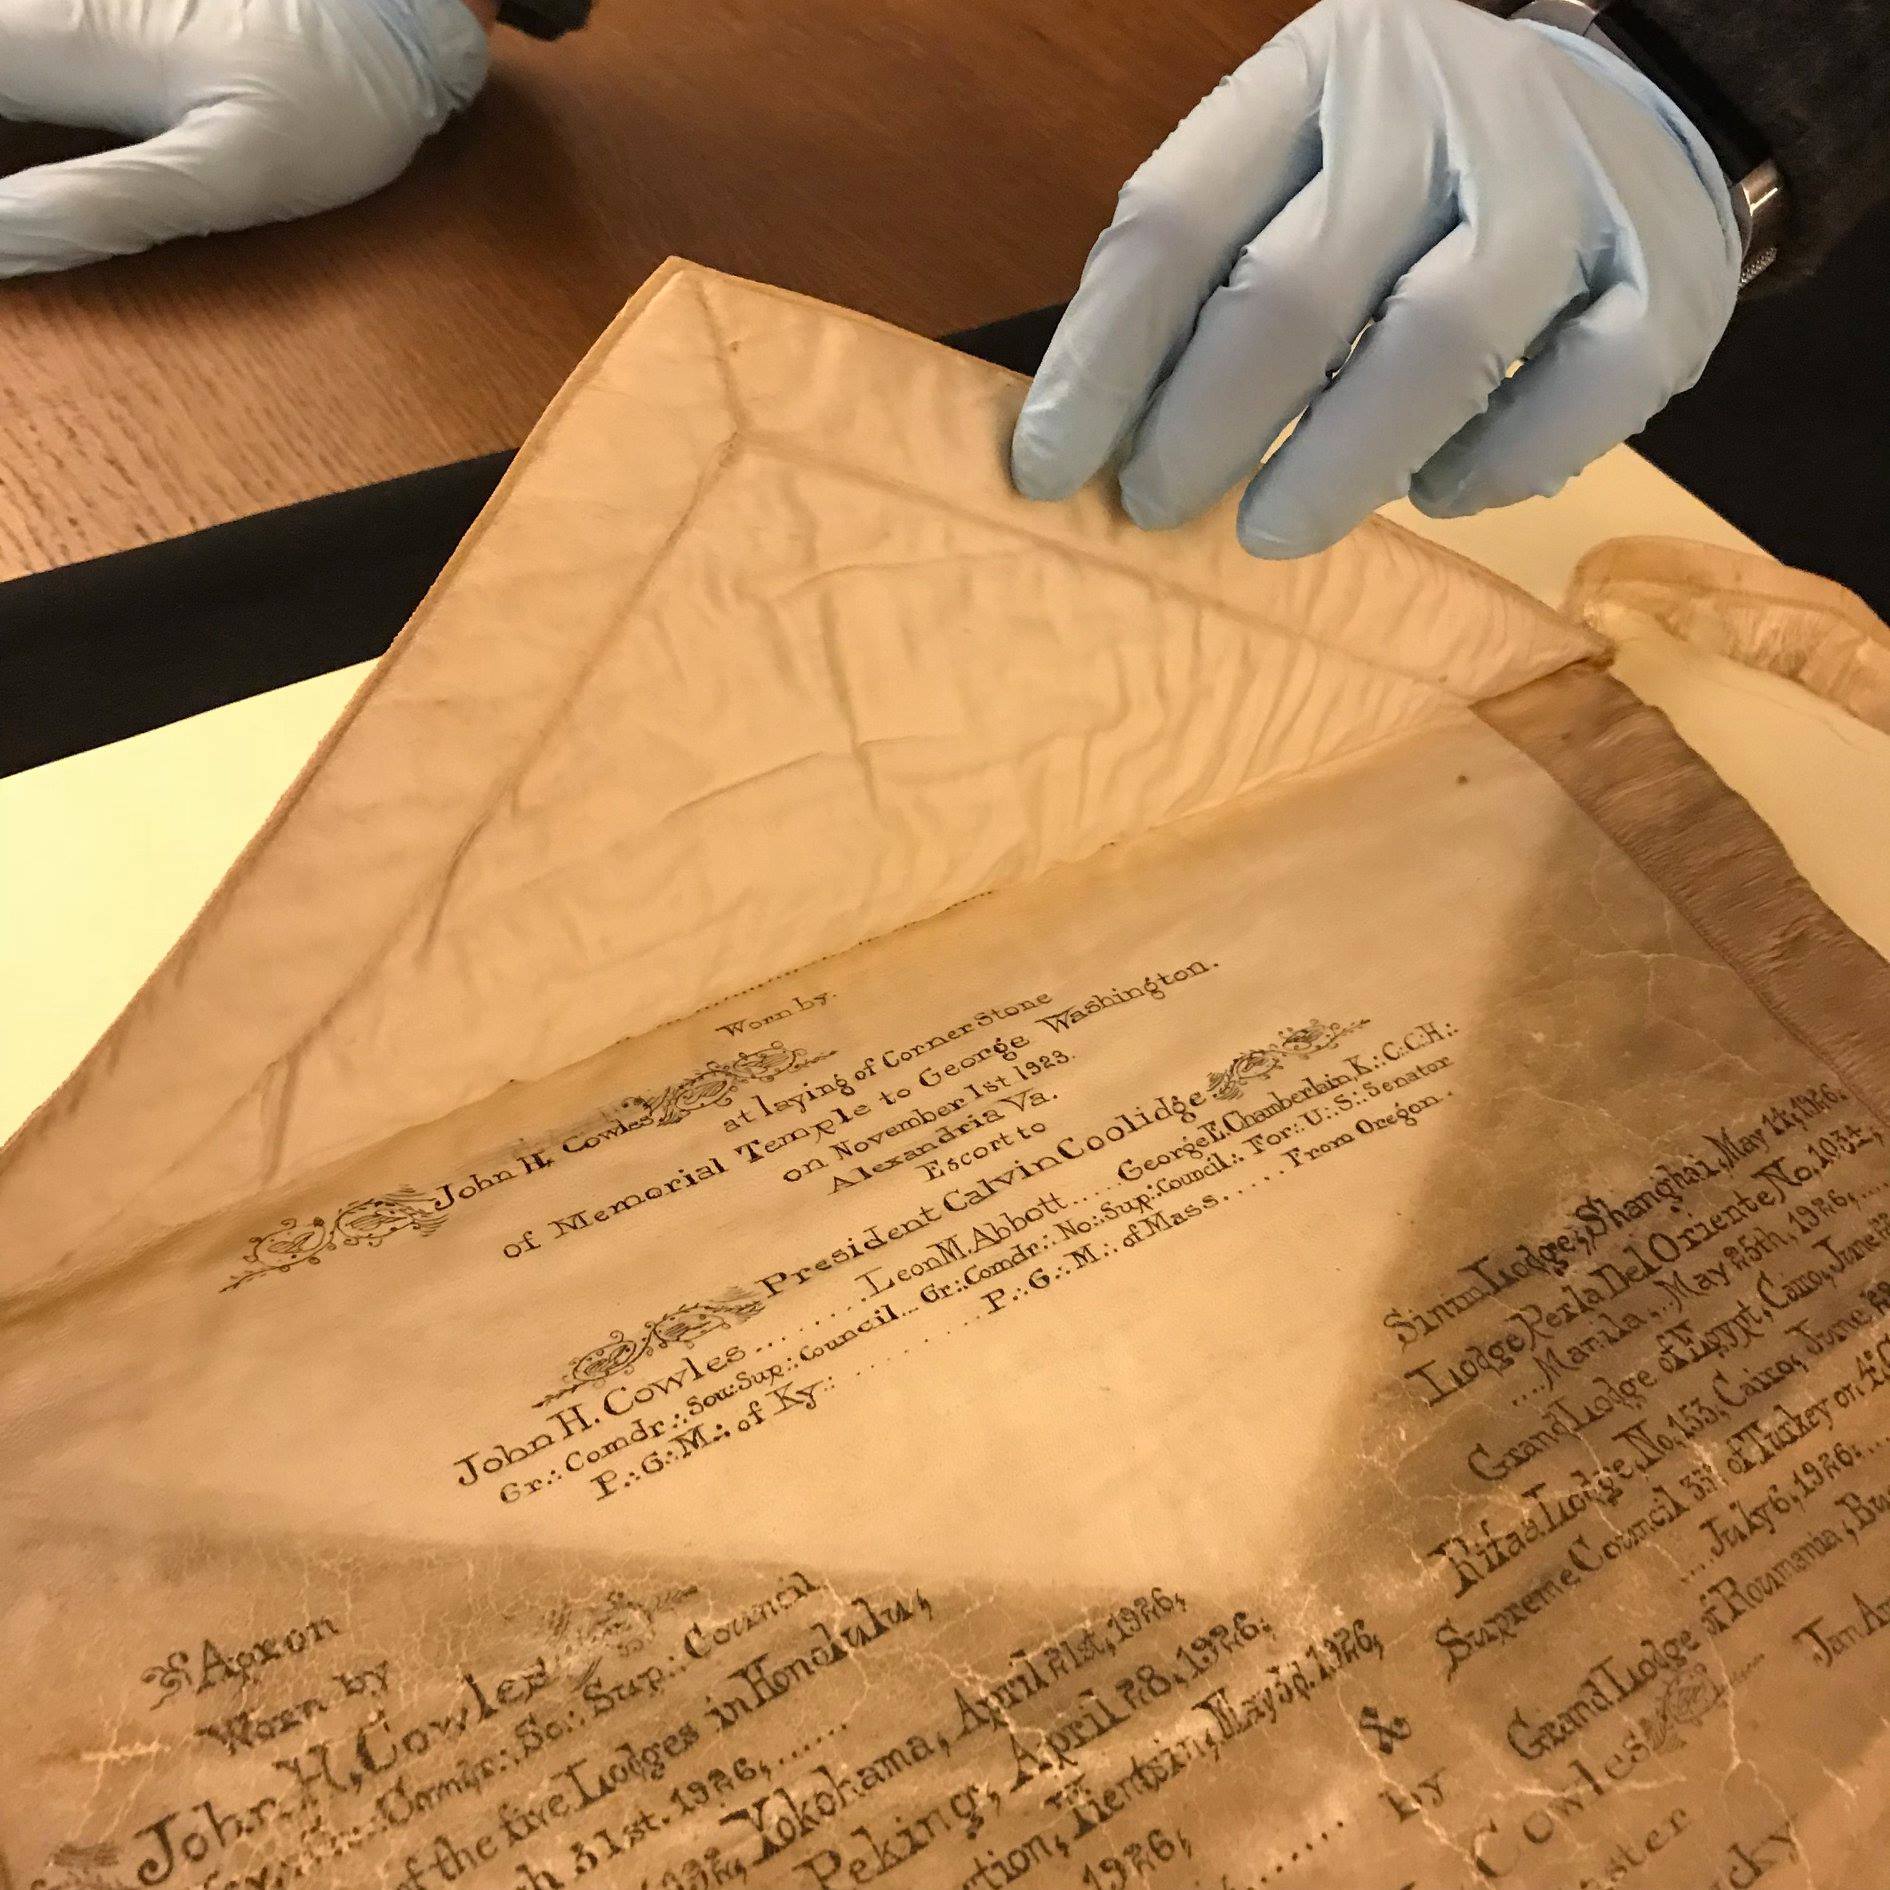 Worn by.
John H. Cowles
at laying of Corner Stone
of Memorial Temple to George Washington.
on November 1st 1923.
Alexandria Va.
Escort to
President Calvin Coolidge
John H. Cowles........Leon M. Abbott.....George E. Chamberlain, K.:C:C:H.:
Gr.:Comdr.:Sou:Sup.:Council...Gr.:Comdr.:No.:Sup.:Council.:For.:U.:S.:Senator
P.:G.:M.: of Ky.: .......... P.:G.:M.: of Mass......From Oregon.
Apron
Worn by
John H. Cowles
So.: Sup.: Council
of the five Lodges in Honolulu,
31st. 1926,......
Yokohama, April 21st, 1926,
Peking, April 28, 1926,
Tientsin, May 3d. 1926,
1926,
Sinim Lodge, Shanghai, May 14, 1926.
Lodge Perla Del Oriente No. 1034,
....Manila,..May 25th, 1926,....
Grand Lodge of Egypt, Cairo, June
Rifaa Lodge, No. 153, Cairo, June
Supreme Council 33° of Turkey
....July 6, 1926:....
Grand Lodge of Roumania,
&
By
Cowles